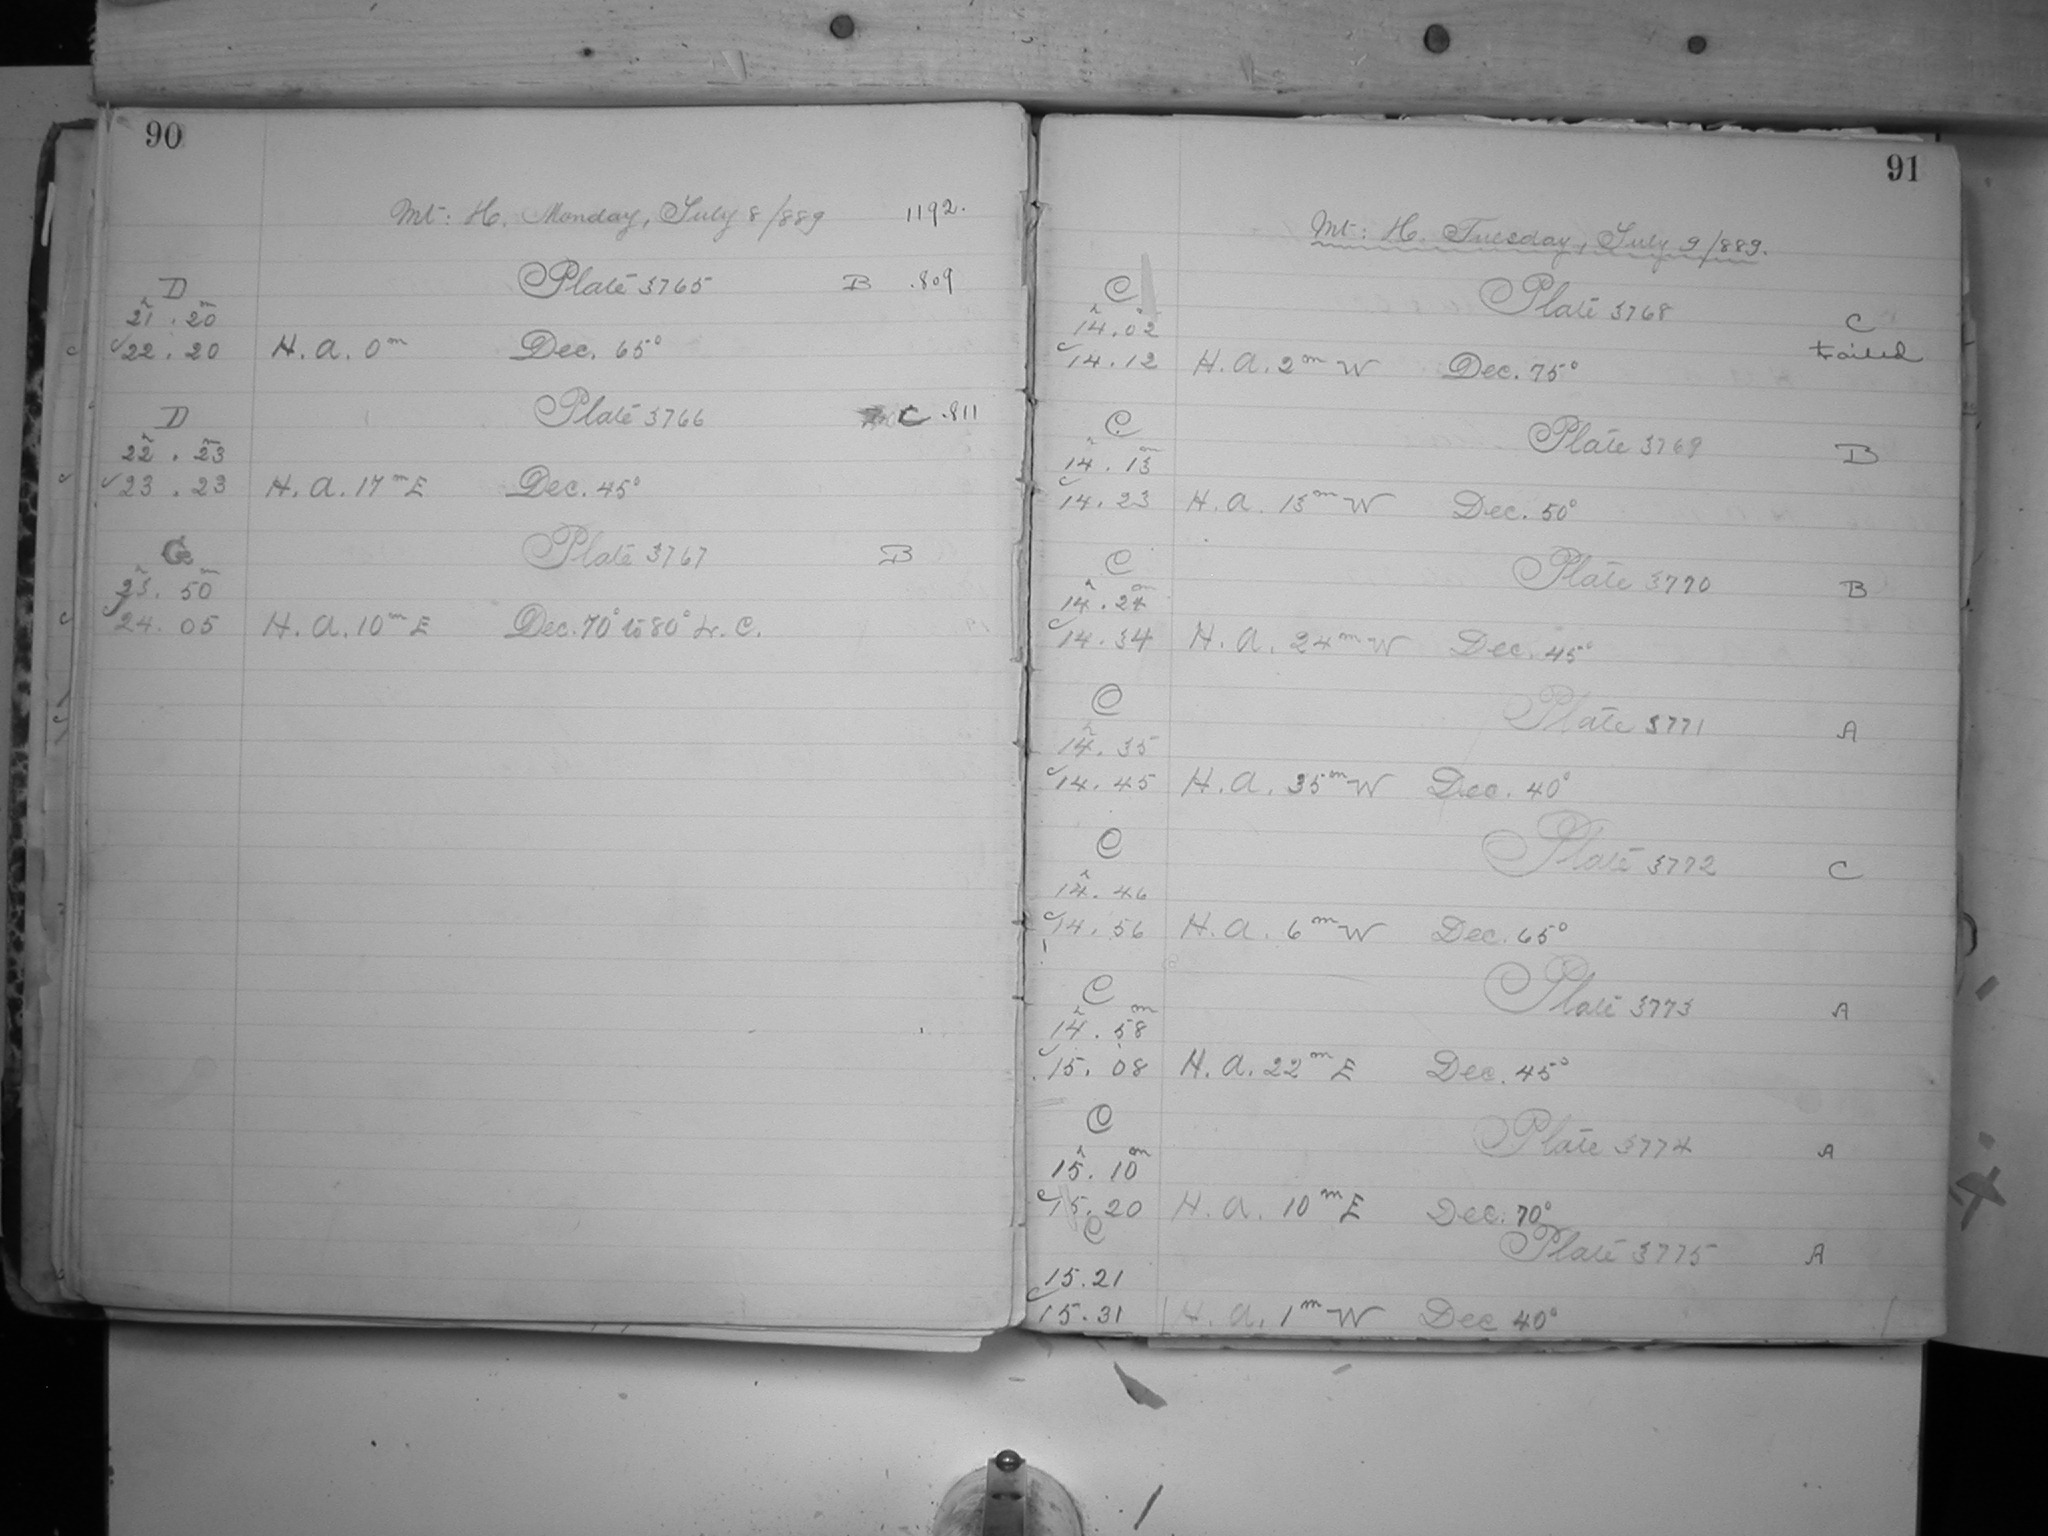 90
Mt: H. Monday, July 8/889 1192.
D Plate 3765 B .809
21h.20m
22.20 H.A. 0m Dec. 65°
D Plate 3766 C .811
22h.23m
23.23 H.A. 17m E Dec. 45°
Plate 3767 B
23h.50m
24.05 H.A. 10m E Dec. 70° to 80° L.C.
91
Mt: H. Tuesday, July 9/889.
C Plate 3768 C
14h.02 trailed
14.12 H.A. 2m W Dec. 75°
C Plate 3769 B
14h.13m
14.23 H.A. 15m W Dec. 50°
C Plate 3770 B
14h.24m
14.34 H.A. 24m W Dec. 45°
C Plate 3771 A
14h.35
14.45 H.A. 35m W Dec. 40°
C Plate 3772 C
14h.46
14.56 H.A. 6m W Dec. 65°
C Plate 3773 A
14h.58m
15.08 H.A. 22m E Dec. 45°
C Plate 3774 A
15h.10m
15.20 H.A. 10m E Dec. 70°
C Plate 3775 A
15.21
15.31 H.A. 1m W Dec 40°